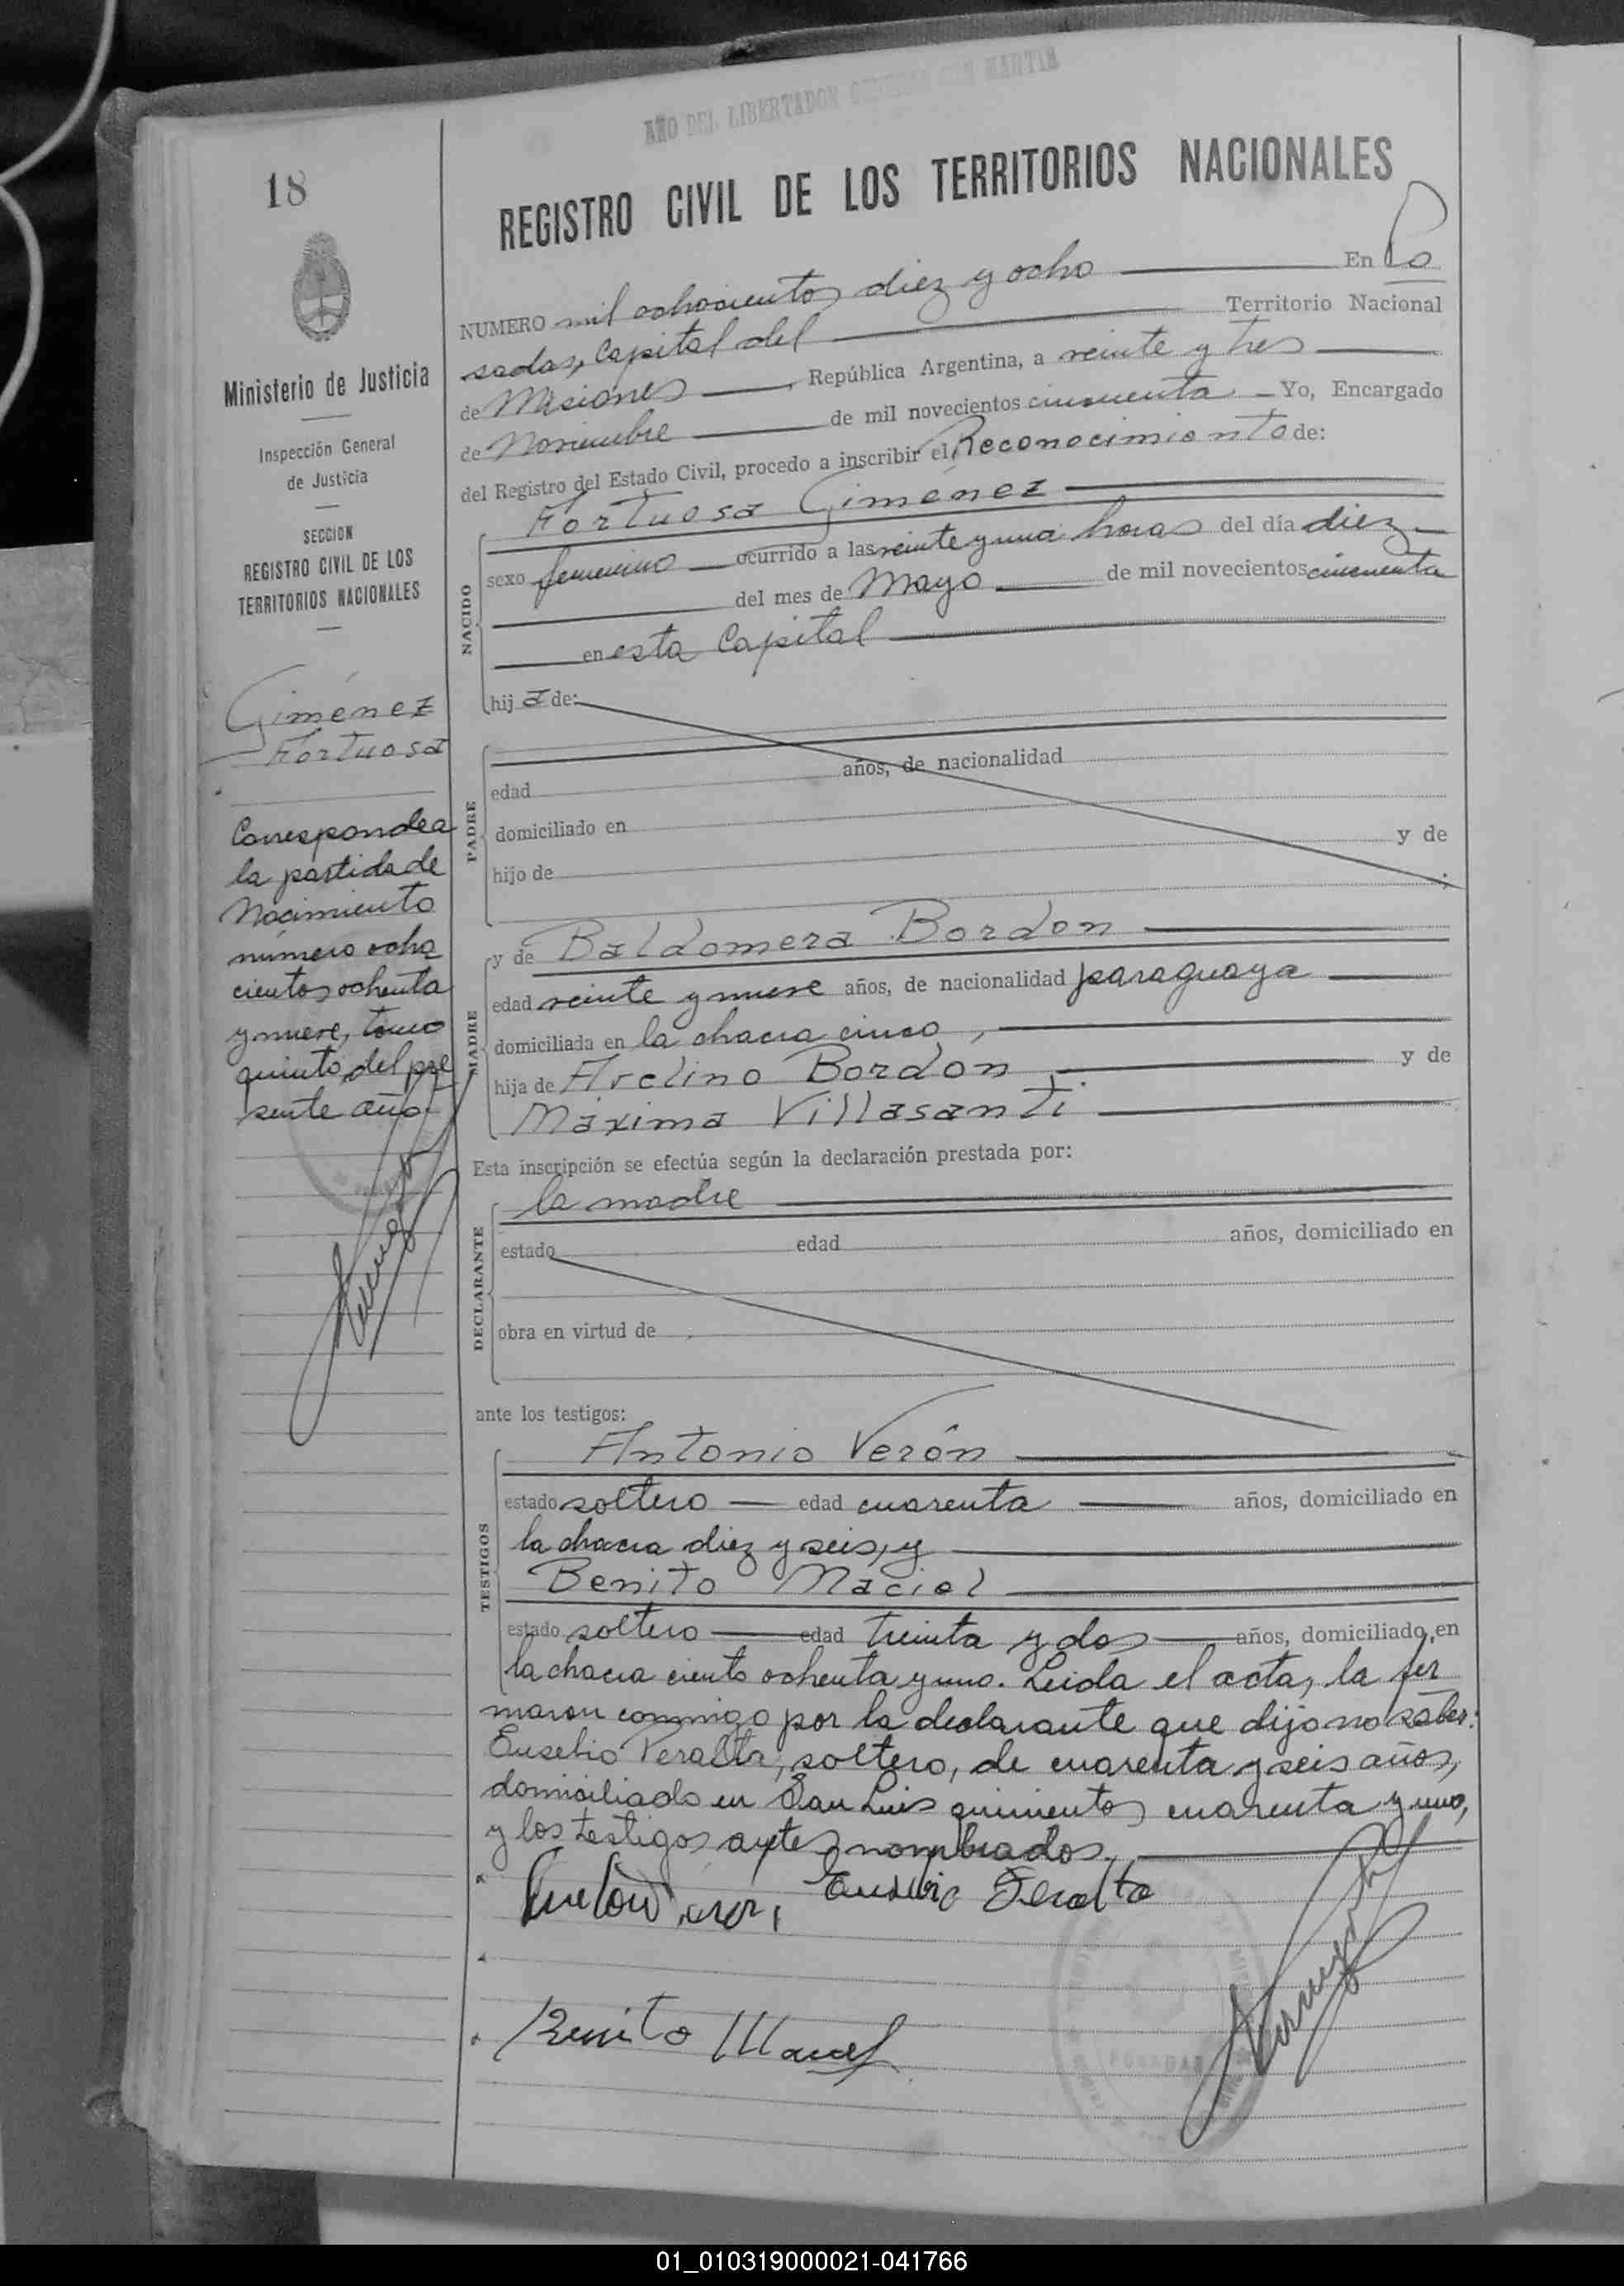 AÑO DEL LIBERTADOR GENERAL SAN MARTIN
18
Ministerio de Justicia
Inspección General
de Justicia
SECCION
REGISTRO CIVIL DE LOS
TERRITORIOS NACIONALES
Giménez
Fortuosa
Corresponde a
la partida de
Nacimiento
número ocho
cientos ochenta
y nueve, tomo
quinto del pre
sente año.
REGISTRO CIVIL DE LOS TERRITORIOS NACIONALES
NUMERO mil ochocientos diez y ocho En Po
sadas, Capital del Territorio Nacional
de Misiones, República Argentina, a veinte y tres
de Noviembre de mil novecientos cincuenta Yo, Encargado
del Registro del Estado Civil, procedo a inscribir el Reconocimiento de:
NACIDO
Fortuosa Giménez
sexo femenino ocurrido a las veinte y una horas del día diez
del mes de Mayo de mil novecientos cincuenta
en esta Capital
hija de:
PADRE
edad años, de nacionalidad
domiciliado en
hijo de y de
;
MADRE
y de Baldomera Bordon
edad veinte y nueve años, de nacionalidad paraguaya
domiciliada en la chacra cinco,
hija de Avelino Bordon y de
Máxima Villasanti
Esta inscripción se efectúa según la declaración prestada por:
DECLARANTE
la madre
estado edad años, domiciliado en
obra en virtud de
ante los testigos:
TESTIGOS
Antonio Verón
estado soltero edad cuarenta años, domiciliado en
la chacra diez y seis, y
Benito Maciel
estado soltero edad treinta y dos años, domiciliado en
la chacra ciento ochenta y uno. Leida el acta, la fir
maron conmigo por la declarante que dijo no saber:
Eusebio Peralta, soltero, de cuarenta y seis años,
domiciliado en San Luis quinientos cuarenta y uno,
y los testigos antes nombrados.
Eusebio Peralta
Benito Maciel
POSADAS
01_010319000021-041766